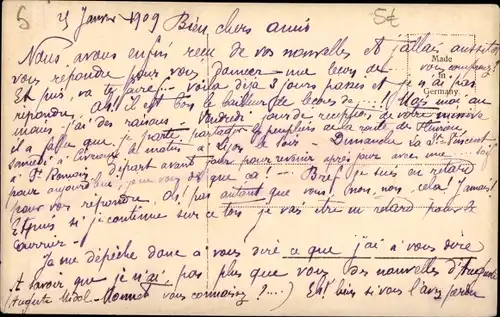 5
25 Janvier 1909 Bien chers amis
5€
Nous avons enfin reçu de vos nouvelles Et j'allais aussitôt
vous répondre pour vous donner une leçon de vous comprenez?
Et puis, va te faire... Voilà déjà 3 jours passés et je n'ai pas
répondu. Ah! il est bon le bailleur de leçons de.... (Mais moi au
Made
in
Germany.
mais j'ai des raisons - Vendredi - jour de réception de votre missive
il a fallu que je parte partager les peupliers de la route de
Samedi à matin à Lyon le soir - Dimanche à St Vincent
à St Romain. Départ avant jour pour revenir après jour avec une
pour aujourd'hui, que vous dis que ça! - Bref je suis en retard
pour vos répondre. Oh! pas autant que vous, non, non, cela jamais
Et puis si je continue sur ce ton je vais être en retard pour le
courrier -
Je me dépêche donc à vous dire ce que j'ai à vous dire
et savoir que je n'ai pas plus que vous des nouvelles d'Auguste
(Auguste vous connaissez ?....) Est bien si vous l'avez perdu